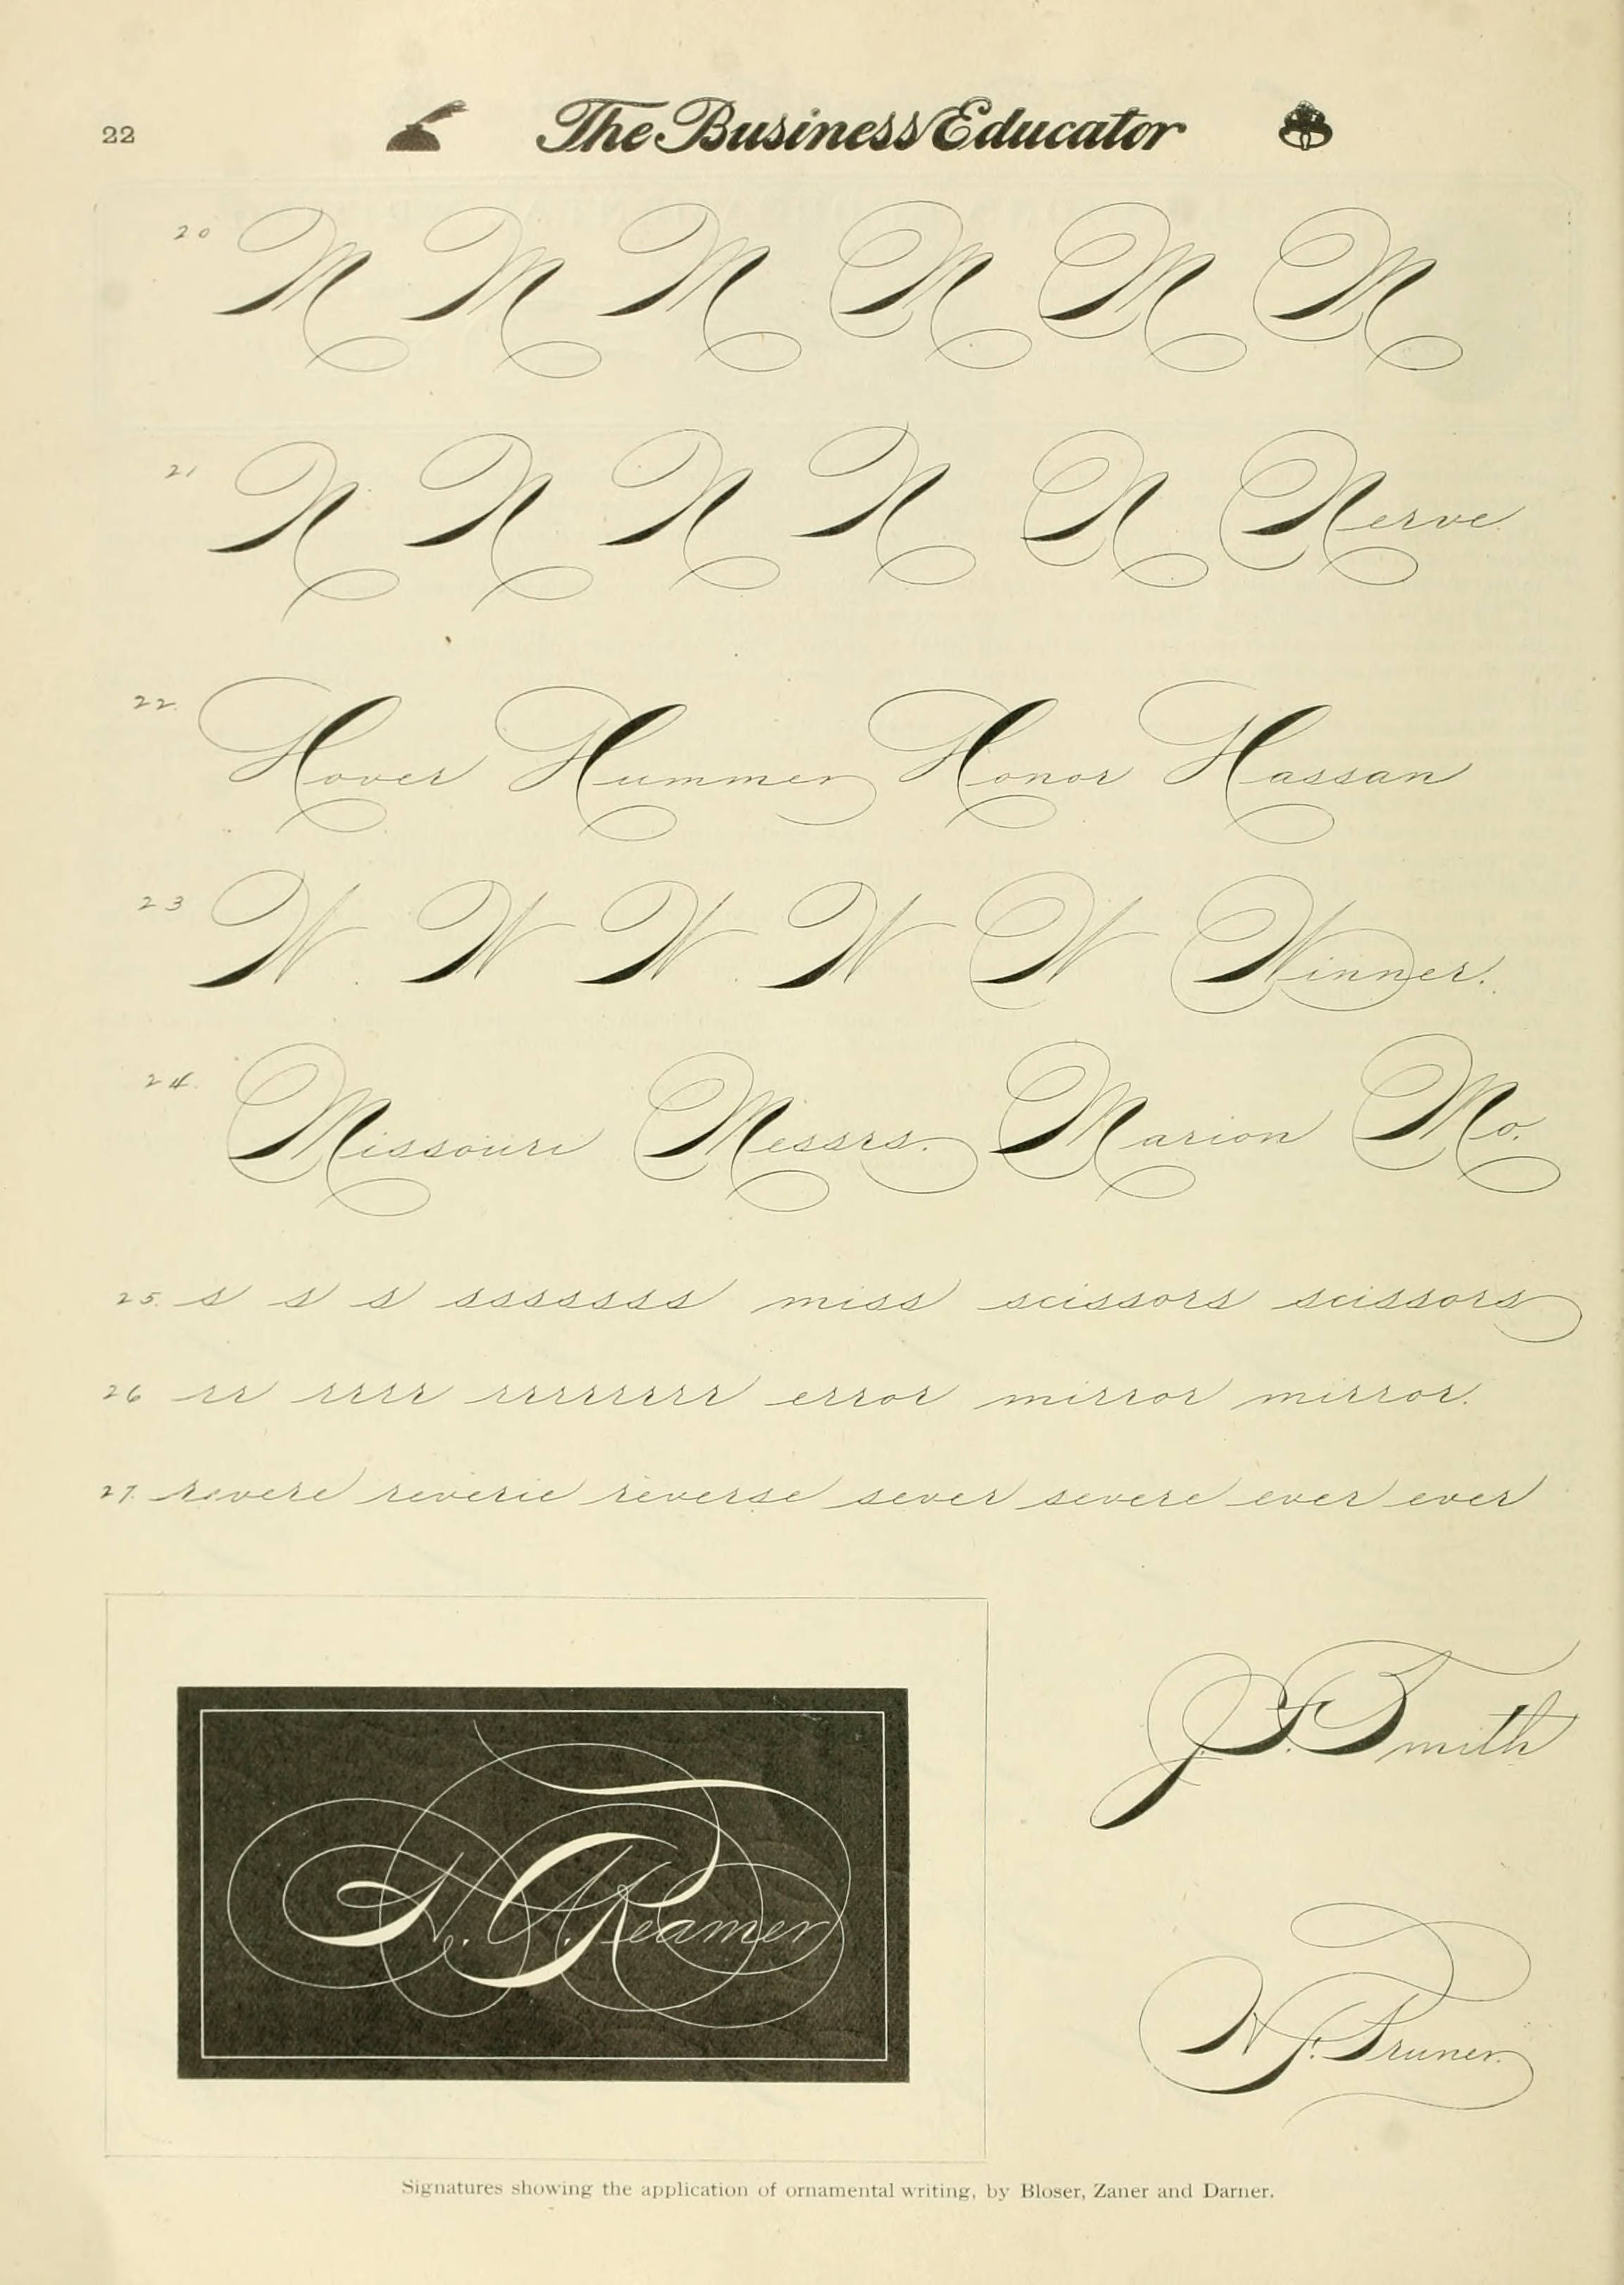 22 The Business Educator
20 M M M M M M
21 N N N N N Nerve.
22. Hover Hummer Honor Hassan
23 W. W W. W W Winner.
24. Missouri Messrs. Marion Mo.
25. s s s sssssss miss scissors scissors
26 rr rrrr rrrrrrrr error mirror mirror.
27. revere reverie reverse sever severe ever ever
J. F. Smith
N. A. Reamer
N. F. Pruner.
Signatures showing the application of ornamental writing, by Bloser, Zaner and Darner.